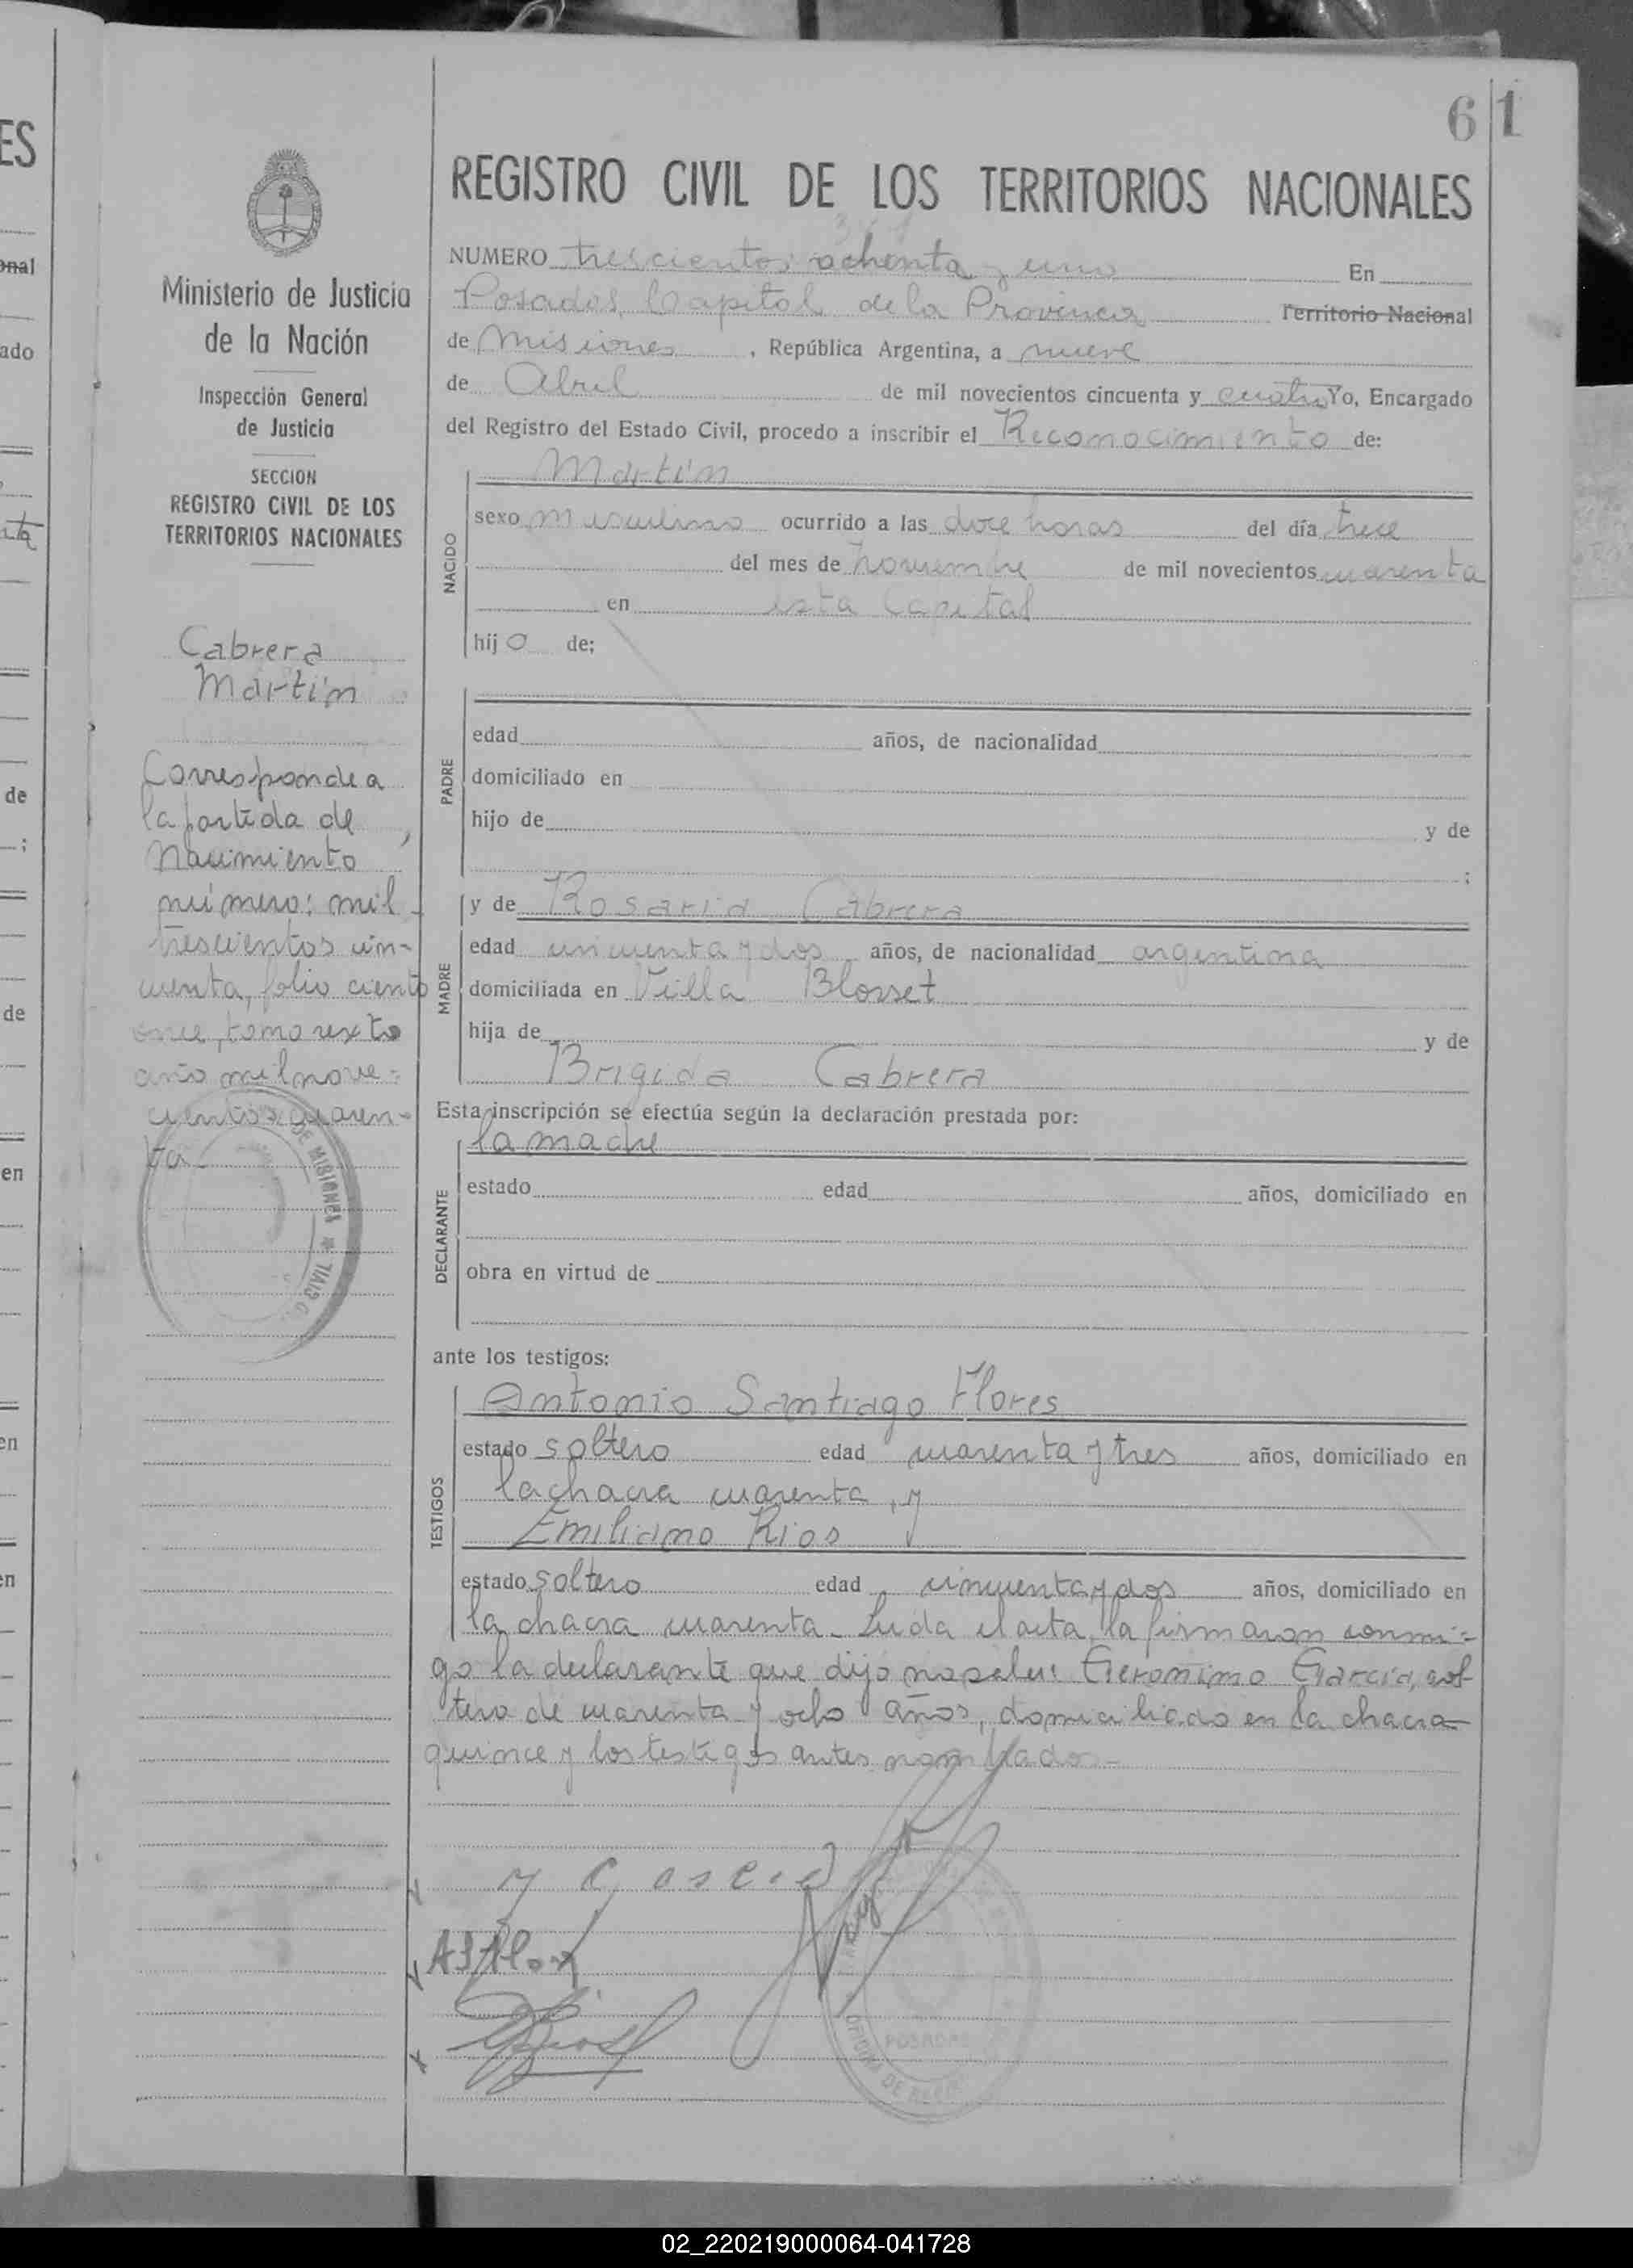 61
REGISTRO CIVIL DE LOS TERRITORIOS NACIONALES
NUMERO trescientos ochenta y uno En
Posadas, Capital de la Provincia Territorio Nacional
de Misiones, República Argentina, a nueve
de Abril de mil novecientos cincuenta y cuatro Yo, Encargado
del Registro del Estado Civil, procedo a inscribir el Reconocimiento de:
NACIDO
Martín
sexo masculino ocurrido a las doce horas del día trece
del mes de noviembre de mil novecientos cuarenta
en esta Capital
hijo de;
PADRE
edad años, de nacionalidad
domiciliado en
hijo de y de
;
MADRE
y de Rosaria Cabrera
edad cincuenta y dos años, de nacionalidad argentina
domiciliada en Villa Blosset
hija de y de
Brigida Cabrera
Esta inscripción se efectúa según la declaración prestada por:
DECLARANTE
la madre
estado edad años, domiciliado en
obra en virtud de
ante los testigos:
TESTIGOS
Antonio Santiago Flores
estado soltero edad cuarenta y tres años, domiciliado en
la chacra cuarenta, y
Emiliano Rios
estado soltero edad cincuenta y dos años, domiciliado en
la chacra cuarenta. Leida el acta, la firmaron conmi-
go la declarante que dijo no saber: Geronimo Garcia, sol-
tero de cuarenta y ocho años, domiciliado en la chacra
quince y los testigos antes nombrados.-
POSADAS
Ministerio de Justicia
de la Nación
Inspección General
de Justicia
SECCION
REGISTRO CIVIL DE LOS
TERRITORIOS NACIONALES
Cabrera
Martín
Corresponde a
la partida de
Nacimiento
número: mil
trescientos cin-
cuenta, folio ciento
once, tomo sexto
año mil nove-
cientos cuaren-
ta-
DE MISIONES * CIVIL
ES
onal
ado
de
;
de
en
en
en
02_220219000064-041728